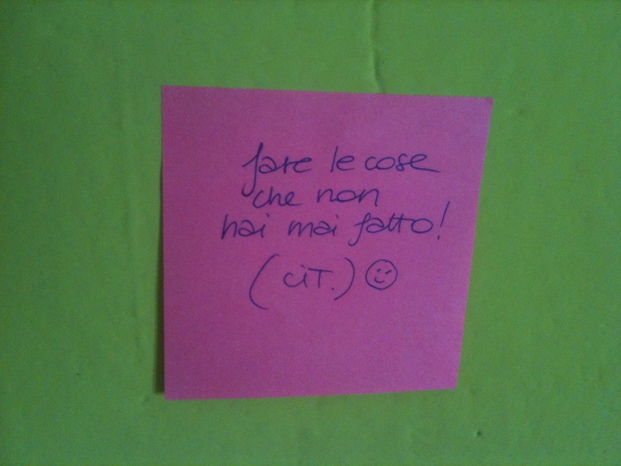 fare le cose
che non
hai mai fatto!
(CIT.)